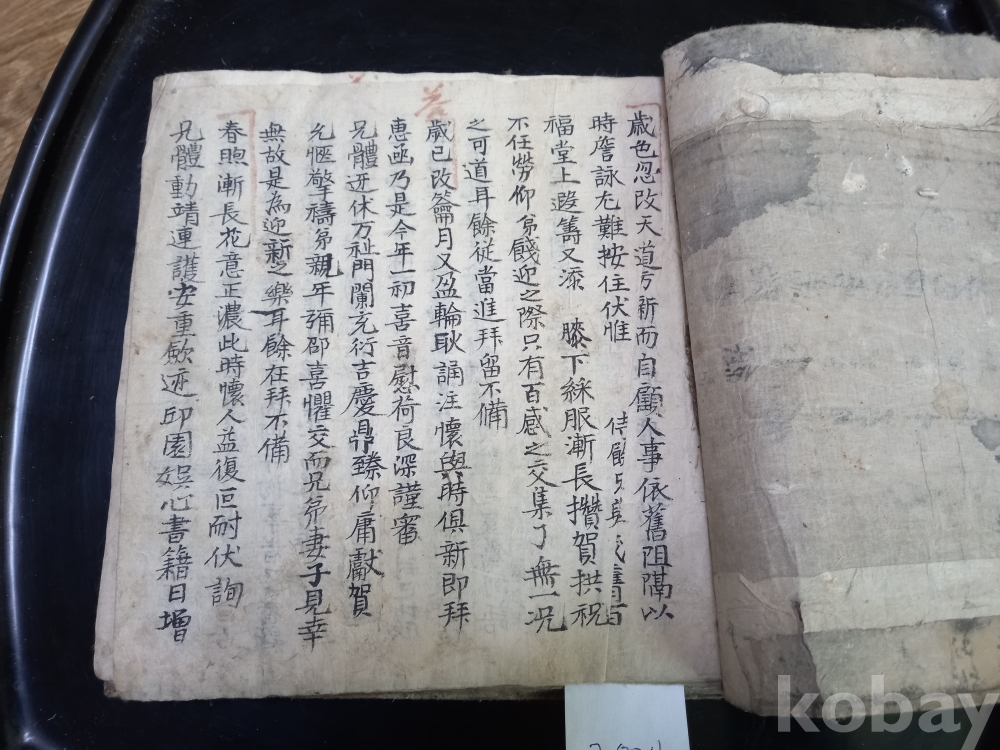 歲色忽改天道亏新而自顧人事依舊阻隔以
時詹詠尤難按住伏惟
侍
百
福堂上遐籌又添 膝下綵服漸長攢賀拱祝
不任勞仰弟餞迎之際只有百感之交集了無一况
之可道耳餘從當進拜留不備
春
歲已改籥月又盈輪耿誦注懷與時俱新即拜
惠函乃是今年一初喜音慰荷良深謹審
兄體迓休万祉門闌充衍吉慶鼎臻仰庸獻賀
允愜擎禱弟親年彌邵喜懼交而兄弟妻子見幸
無故是為迎新之樂耳餘在拜不備
春煦漸長花意正濃此時懷人益復叵耐伏詢
兄體動靖連護安重歛迹邱園娛心書籍日增
kobay